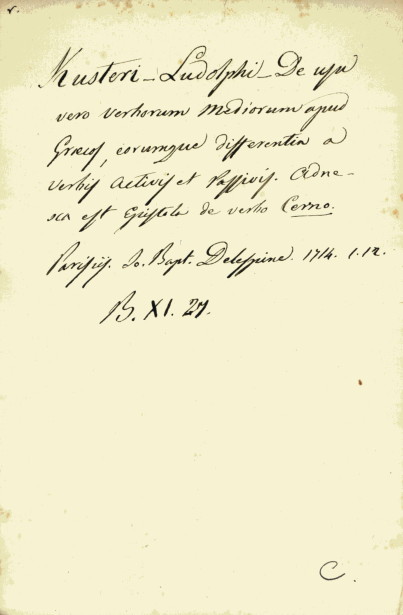 v.
Kusteri - Ludolphi - De usu
vero verborum Mediorum apud
Græcos, eorumque differentia a
verbis Activis et Passivis. Adne-
xa est Epistola de verbo Cerno.
Parisiis. Jo. Bapt. Delespine. 1714. 1.12.
B. XI. 27.
C.